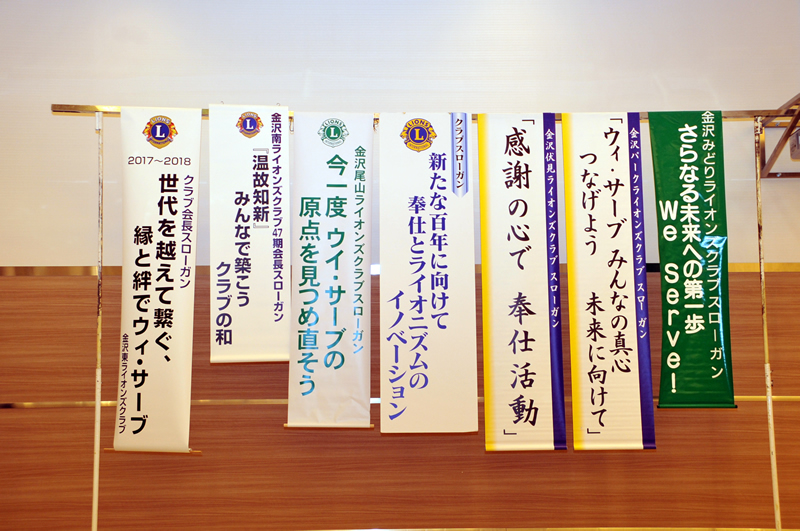 LIONS
L
2017～2018
クラブ会長スローガン
世代を越えて繋ぐ、
縁と絆でウィ・サーブ
金沢東ライオンズクラブ
L
金沢南ライオンズクラブ47期会長スローガン
『温故知新』
みんなで築こう
クラブの和
LIONS
L
金沢尾山ライオンズクラブスローガン
今一度 ウィ・サーブの
原点を見つめ直そう
LIONS
L
クラブスローガン
新たな百年に向けて
奉仕とライオニズムの
イノベーション
金沢伏見ライオンズクラブ スローガン
「感謝の心で 奉仕活動」
金沢パークライオンズクラブ スローガン
「ウィ・サーブ みんなの真心
つなげよう 未来に向けて」
金沢みどりライオンズクラブスローガン
さらなる未来への第一歩
We Serve!